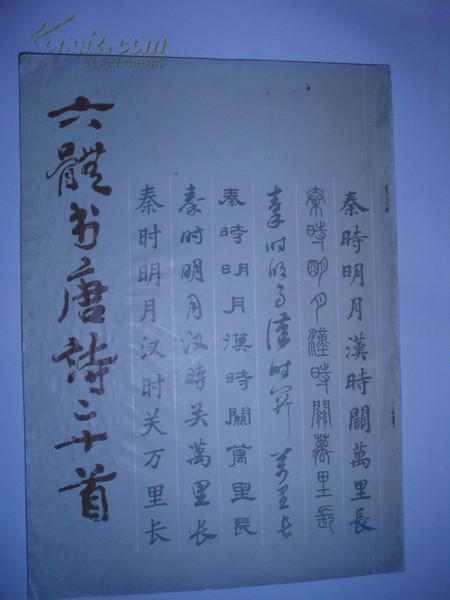 kongfz.com
六體书唐詩二十首
秦時明月漢時關萬里長
秦時明月漢時關萬里長
秦时明月漢时关萬里长
秦時明月漢時關萬里長
秦时明月汉時关萬里长
秦时明月汉时关万里长